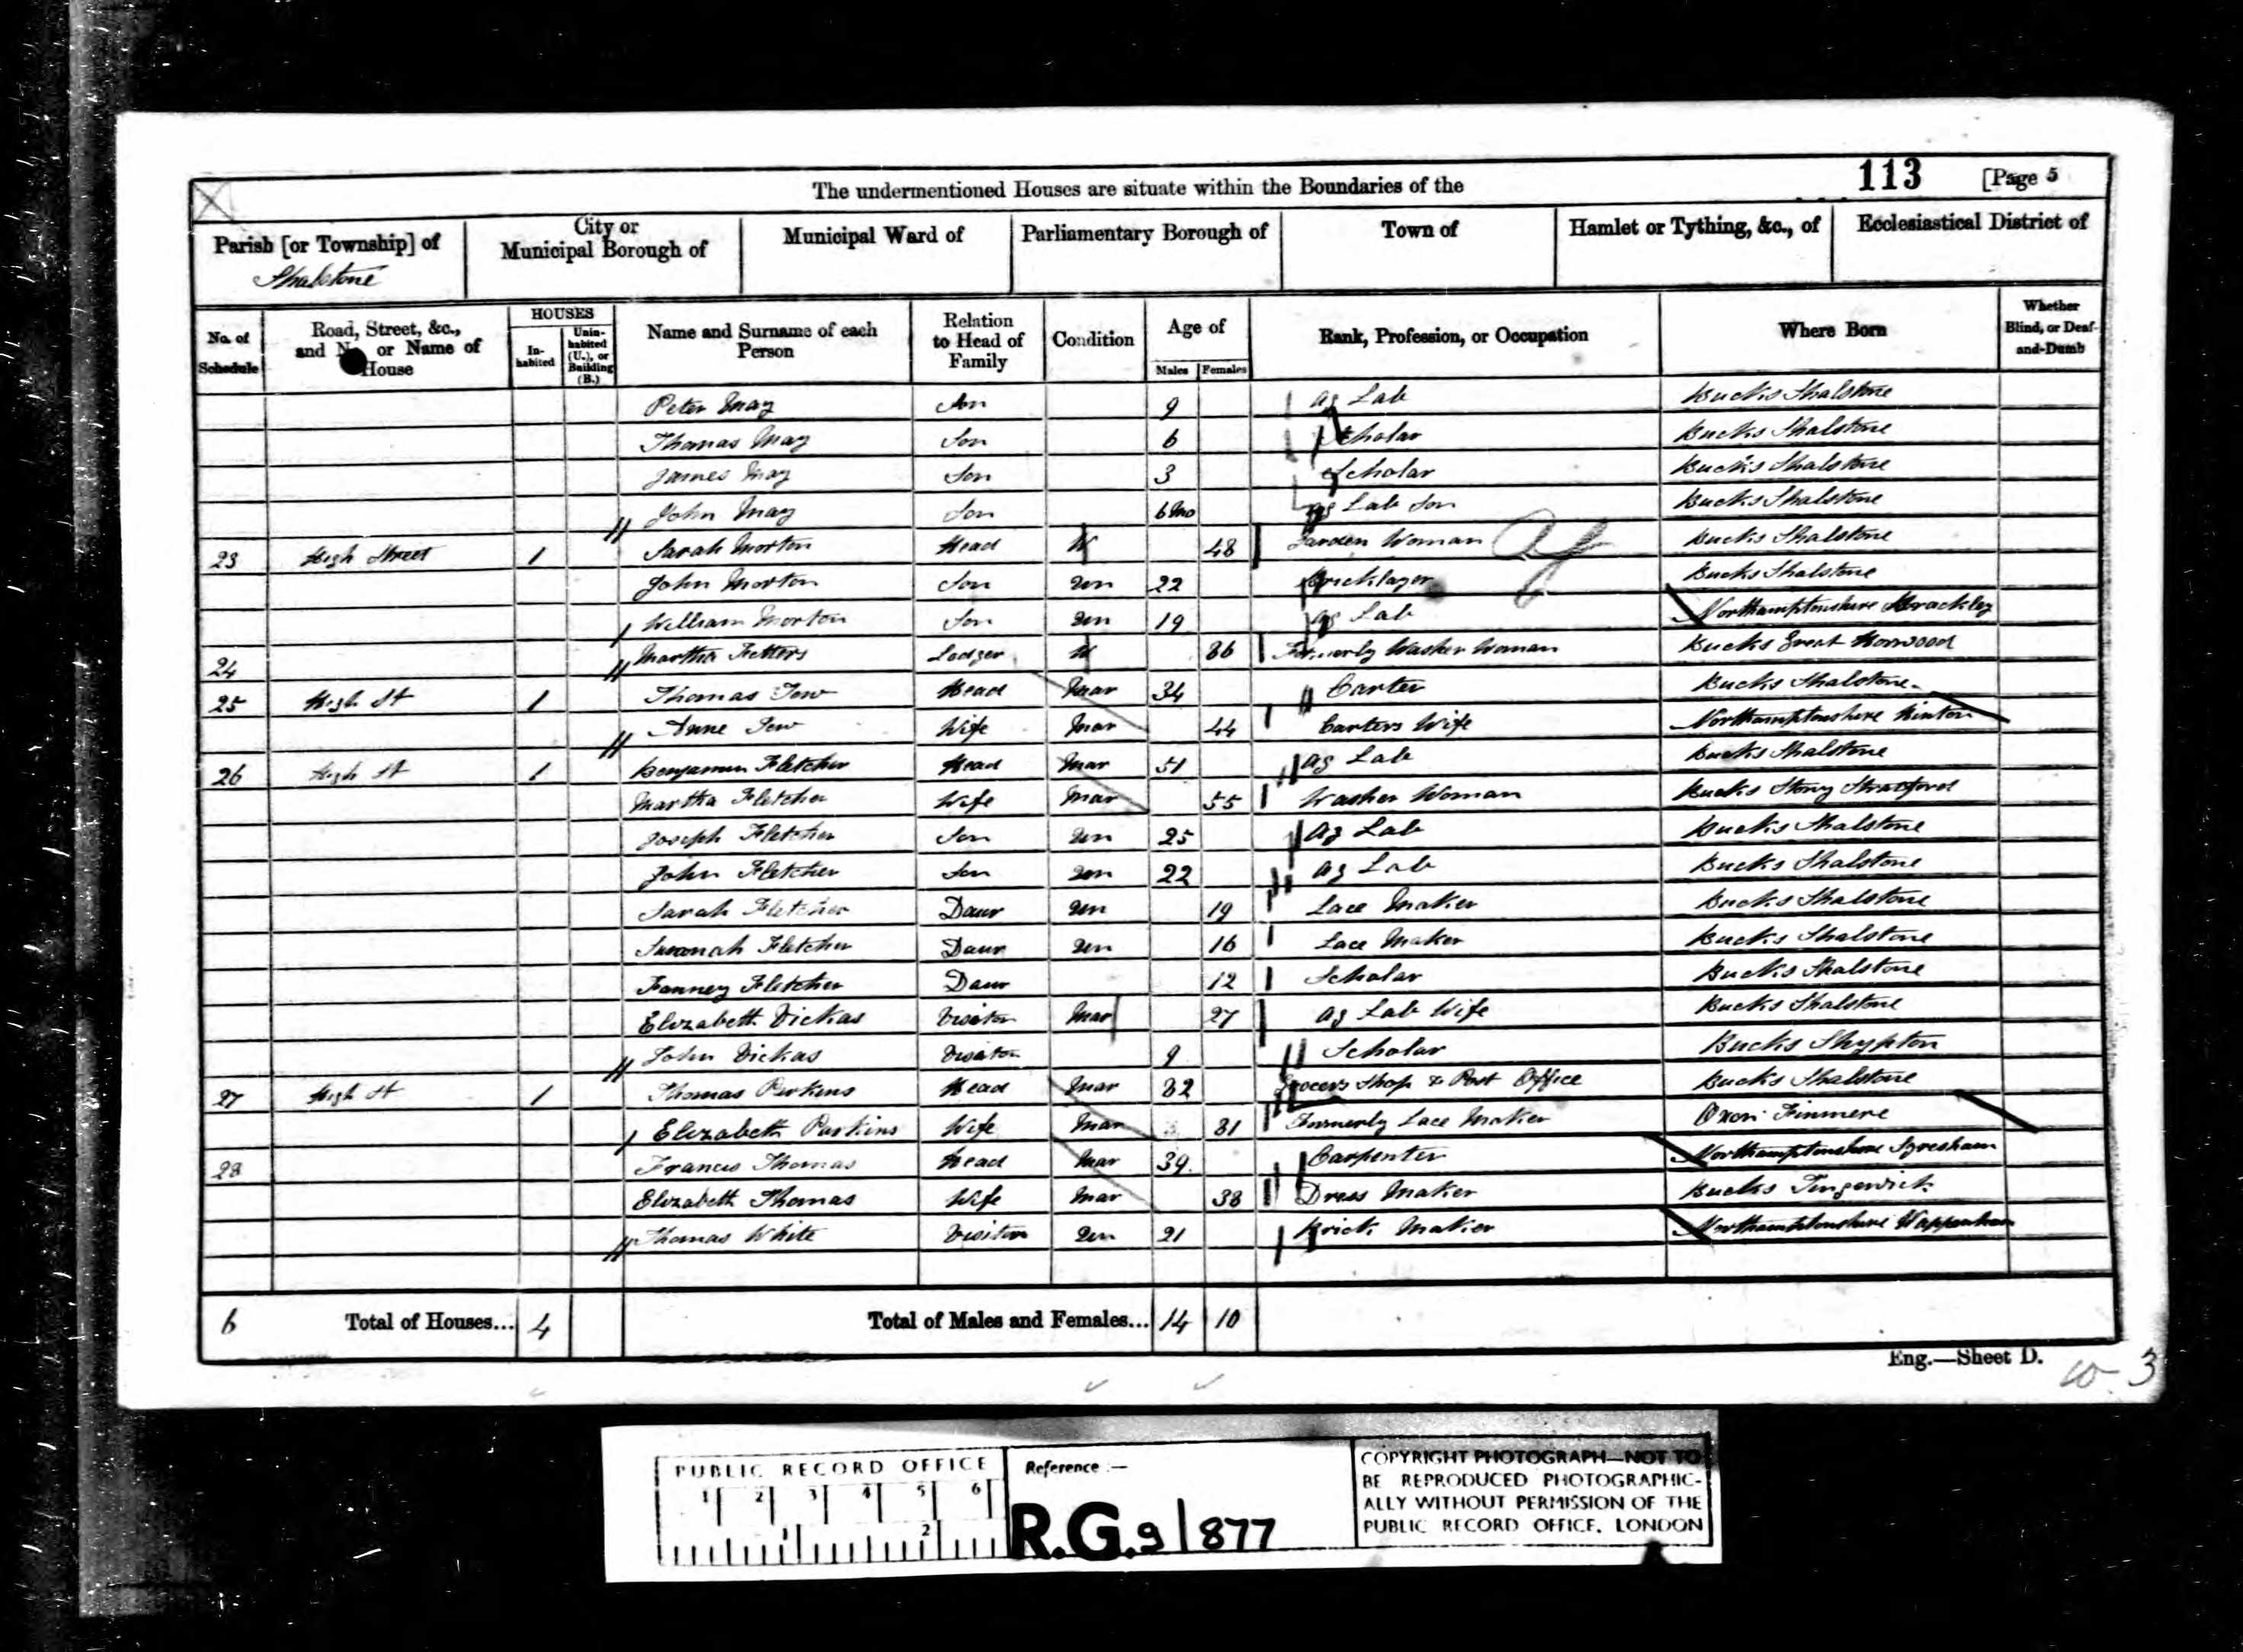 The undermentioned Houses are situate within the Boundaries of the
113 [Page 5
Parish [or Township] of Shalstone
City or Municipal Borough of
Municipal Ward of
Parliamentary Borough of
Town of
Hamlet or Tything, &c., of
Ecclesiastical District of
No. of Schedule
Road, Street, &c., and No. or Name of House
HOUSES
In-habited
Unin-habited (U.), or Building (B.)
Name and Surname of each Person
Relation to Head of Family
Condition
Age of
Males Females
Rank, Profession, or Occupation
Where Born
Whether Blind, or Deaf-and-Dumb
Peter May Son 9 Ag Lab Bucks Shalstone
Thomas May Son 6 Scholar Bucks Shalstone
James May Son 3 Scholar Bucks Shalstone
John May Son 6 Mo Ag Lab Son Bucks Shalstone
23 High Street 1 Sarah Morton Head W 48 Garden Woman Ag Bucks Shalstone
John Morton Son Un 22 Bricklayer Bucks Shalstone
William Morton Son Un 19 Ag Lab Northamptonshire Brackley
24 Martha Lodger W 86 Formerly Washer Woman Bucks Great Horwood
25 High St 1 Thomas Tew Head Mar 34 Carter Bucks Shalstone
Anne Tew Wife Mar 44 Carters Wife Northamptonshire Hinton
26 High St 1 Benjamin Fletcher Head Mar 51 Ag Lab Bucks Shalstone
Martha Fletcher Wife Mar 55 Washer Woman Bucks Stony Stratford
Joseph Fletcher Son Un 25 Ag Lab Bucks Shalstone
John Fletcher Son Un 22 Ag Lab Bucks Shalstone
Sarah Fletcher Daur Un 19 Lace Maker Bucks Shalstone
Susanah Fletcher Daur Un 16 Lace Maker Bucks Shalstone
Fanney Fletcher Daur 12 Scholar Bucks Shalstone
Elizabeth Dickas Visitor Mar 27 Ag Lab Wife Bucks Shalstone
John Dickas Visitor 9 Scholar Bucks
27 High St 1 Thomas Perkins Head Mar 82 Grocers Shop & Post Office Bucks Shalstone
Elizabeth Perkins Wife Mar 81 Formerly Lace Maker Oxon Finmere
28 Francis Thomas Head Mar 39 Carpenter Northamptonshire Syresham
Elizabeth Thomas Wife Mar 38 Dress Maker Bucks Tingewick
Thomas White Visitor Un 21 Brick Maker Northamptonshire Wappenham
6 Total of Houses... 4 Total of Males and Females... 14 10
Eng.—Sheet D.
PUBLIC RECORD OFFICE
1 2 3 4 5 6
1 2
Reference :—
R.G. 9/877
COPYRIGHT PHOTOGRAPH—NOT TO
BE REPRODUCED PHOTOGRAPHIC-
ALLY WITHOUT PERMISSION OF THE
PUBLIC RECORD OFFICE, LONDON